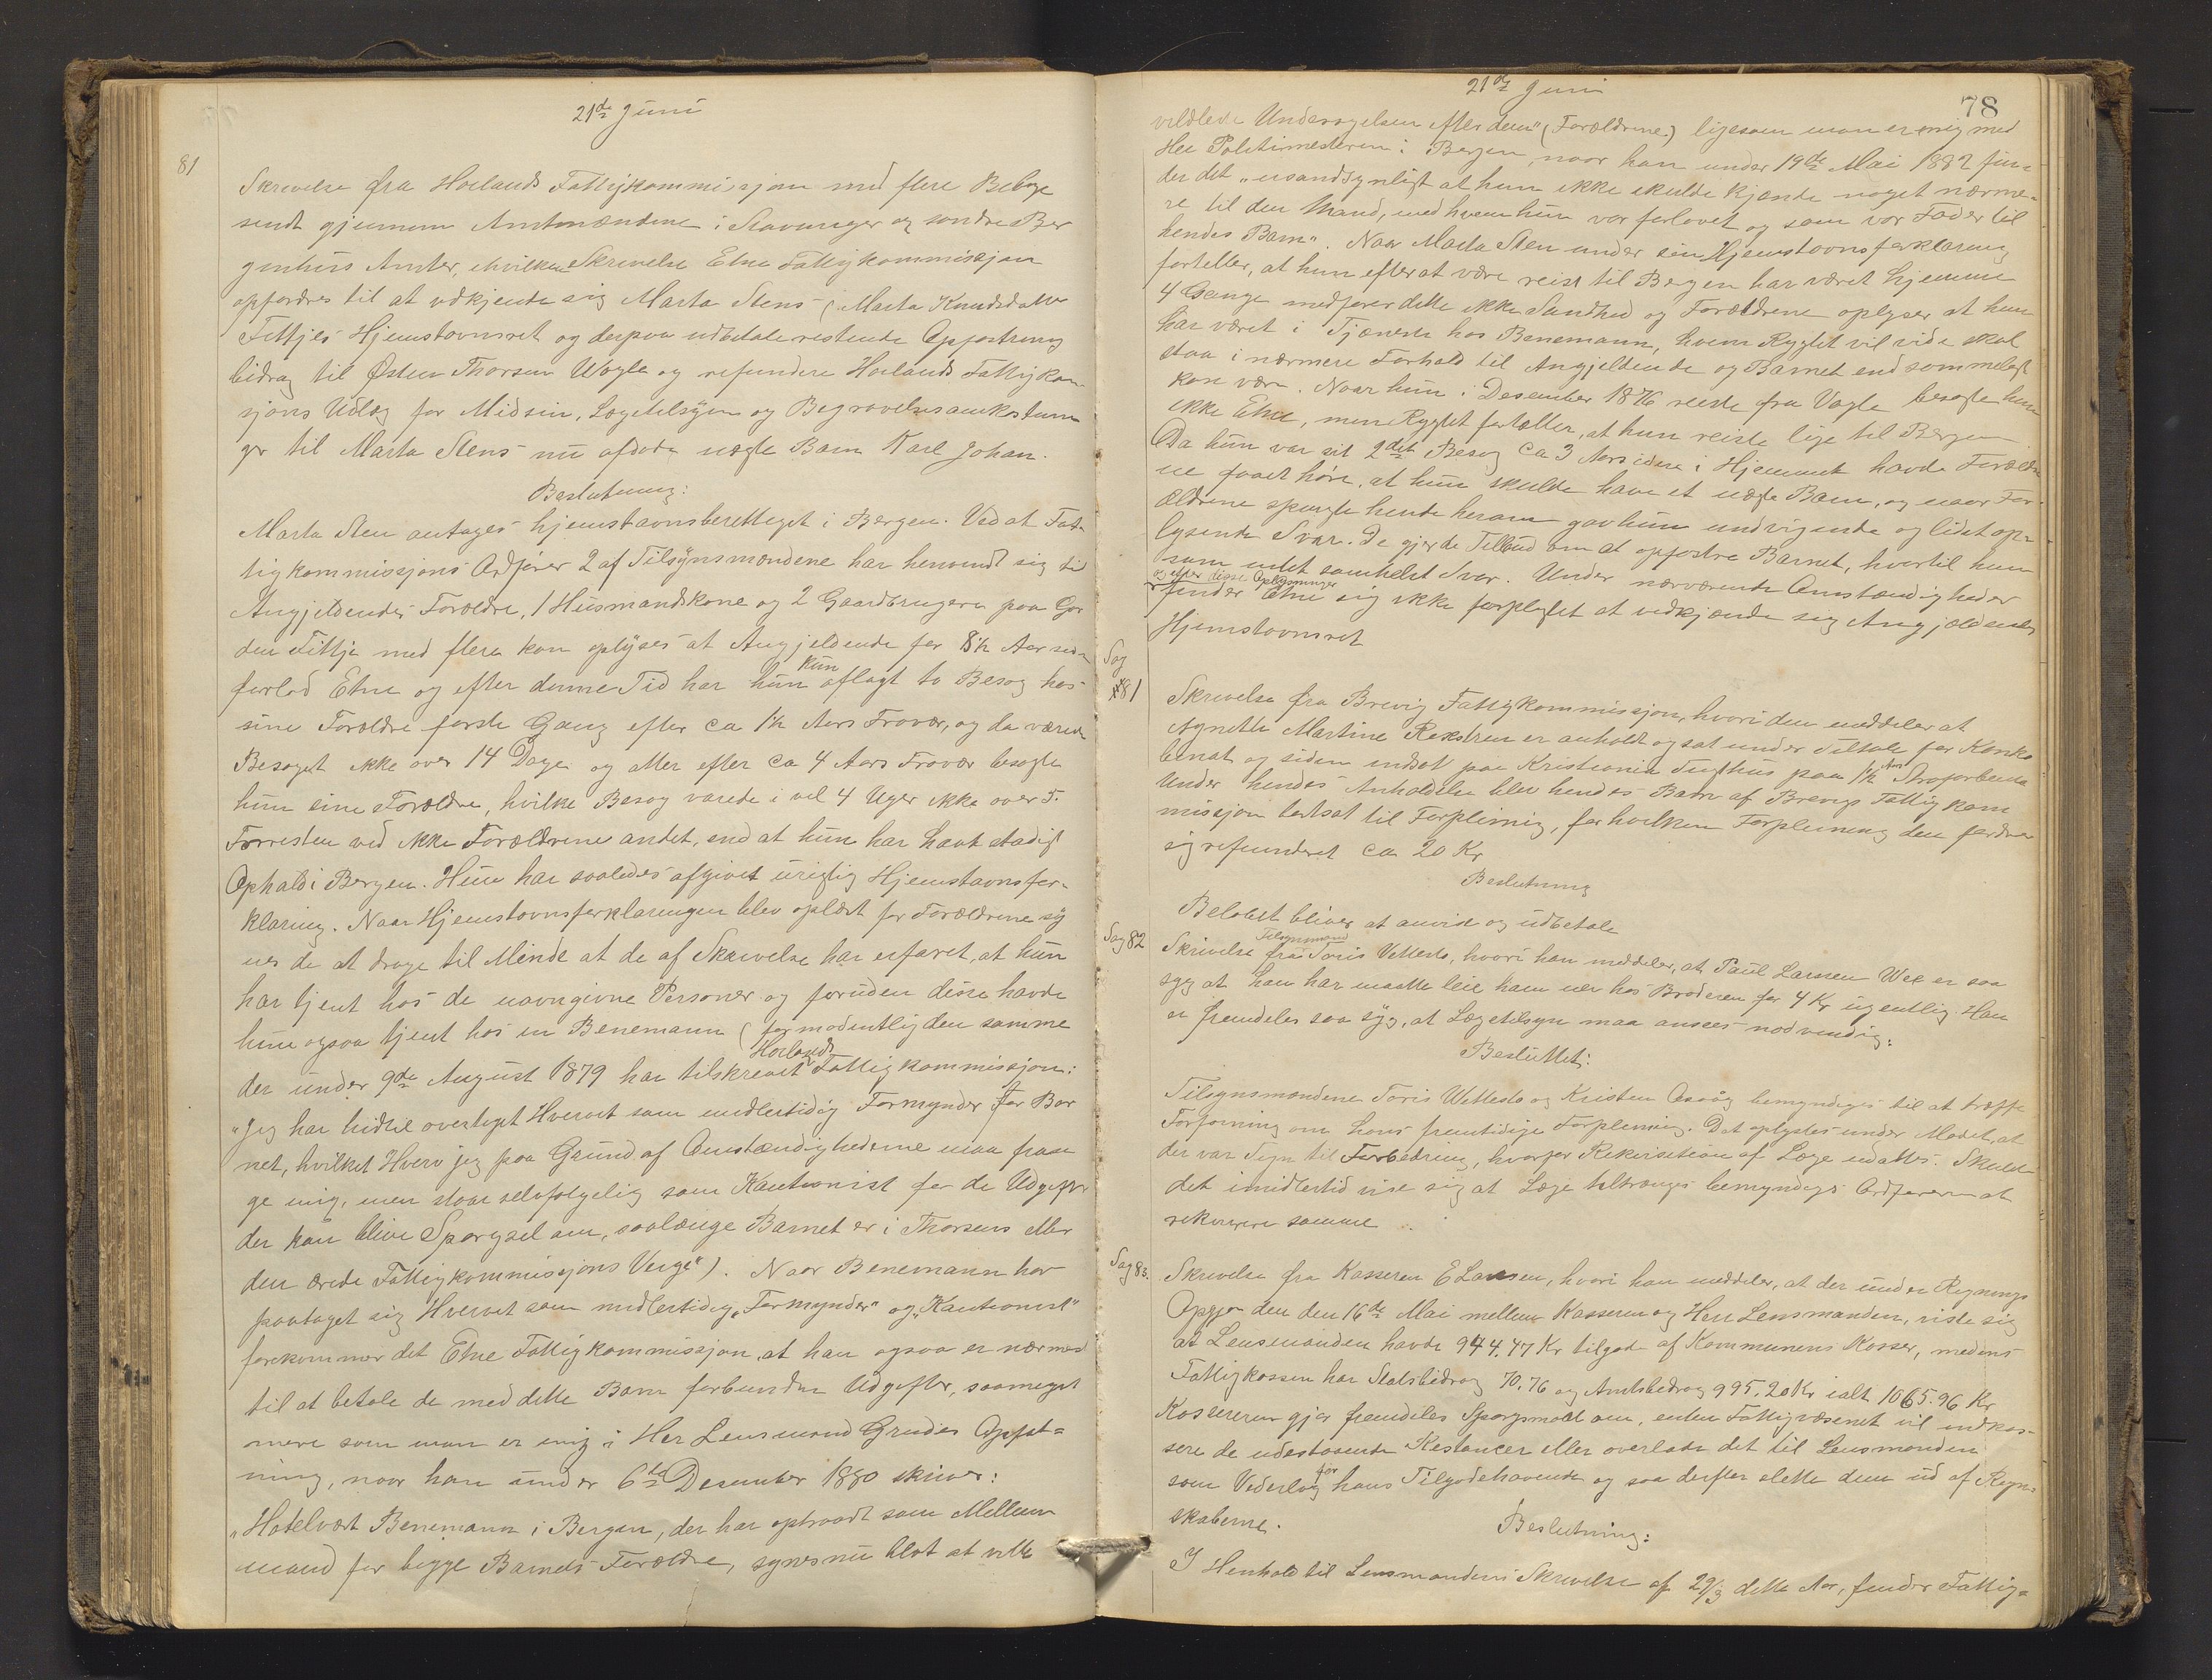 21de Juni
81
Skrivelse fra Hølands Fattigkommissjon med flere Bilage
sendt gjennem Amtmændene i Stavanger og søndre Ber
genhus Amter, i hvilken Skrivelse Etne Fattigkommissjon
opfordres til at vedkjende sig Marta Stens (Marta Knudsdatter
Tittjes Hjemstavnsret og derpaa udbetale restende Opfostrings
bidrag til Østen Thorsen Vagle og refundere Hølands Fattigkom
sjons Udlæg for Midsin, Lægetilsyn og Begravelsesomkostnin
ger til Marta Stens nu afdøde uægte Barn Karl Johan.
Beslutning:
Marta Sten antages hjemstavnsberettiget i Bergen. Ved at Fat-
tigkommissjons Ordfører 2 af Tilsynsmændene har henvendt sig til
Angjeldendes Forældre, 1 Husmandskone og 2 Gaardbrugere paa Gar
den Tittje med flere kan oplyses at Angjeldende for 8½ Aar siden
forlod Etne og efter denne Tid har hun kun aflagt to Besøg hos
sine Forældre første Gang efter ca 1½ Aars Fravær, og da varede
Besøget ikke over 14 Dage og atter efter ca 4 Aars Fravær besøgte
hun sine Forældre, hvilke Besøg varede i vel 4 Uger ikke over 5.
Forresten ved ikke Forældrene andet, end at hun har havt stadigt
Ophold i Bergen. Hun har saaledes afgivet urigtig Hjemstavnsfor-
klaring. Naar Hjemstavnsforklaringen blev oplæst for Forældrene sy
nes de at drage til Minde at de af Skrivelse har erfaret, at hun
har tjent hos de navngivne Personer og foruden disse havde
hun ogsaa tjent hos en Benemann (formodentlig den samme
der under 9de August 1879 har tilskrevet Hølands Fattigkommissjon:
"Jeg har hidtil overtaget Hvervet som midlertidig Formynder for Bar
net, hvilket Hverv jeg paa Grund af Omstændighederne maa frasi
ge mig, men staar selvfølgelig som Kautionist for de Udgifter
der kan blive Spørgsel om, saalænge Barnet er i Thorsens eller
den ærede Fattigkommissjons Verge"). Naar Benemann har
paataget sig Hvervet som midlertidig "Formynder" og "Kautionist"
forekommer det Etne Fattigkommissjon, at han ogsaa er nærmest
til at betale de med dette Barn forbundne Udgifter, saameget
mere som man er enig i Her Lensmand Grudes Opfat=
ning, naar han under 6te Desember 1880 skriver:
"Hotelvært Benemann i Bergen, der har optraadt som Mellem
mand for begge Barnets Forældre, synes nu blot at ville
21de Juni
78
vildlede Undersøgelsen efter dem" (Forældrene) ligesom man er enig med
Her Politimesteren i Bergen, naar han under 19de Mai 1882 fin-
der det "usandsynligt at hun ikke skulde kjende noget nærme-
re til den Mand, med hvem hun var forlovet og som var Fader til
hendes Barn". Naar Marta Sten under sin Hjemstavnsforklaring
forteller, at hun efter at være reist til Bergen har været hjemme
4 Gange medfører dette ikke Sandhed og Forældrene oplyser at hun
har været i Tjæneste hos Benemann, hvem Rygtet vil vide skal
staa i nærmere Forhold til Angjeldende og Barnet end sommeligt
kan være. Naar hun i Desember 1876 reiste fra Vagle besøgte hun
ikke Etne, men Rygtet fortæller, at hun reiste lige til Bergen
Da hun var sit 2det Besøg ca 3 Aar siden i Hjemmet havde Foræld
ne faaet høre, at hun skulde have et uægte Barn, og naar For-
ældrene spurgte hende herom gav hun undvigende og lidet op-
lysende Svar. De gjorde Tilbud om at opfostre Barnet, hvortil hun
som intet somhelst Svar. Under nærværende Omstændigheder
og efter disse Oplysninger
finder Etne sig ikke forpligtet at vedkjende sig Angjældendes
Hjemstavnsret
Sag
81
Skrivelse fra Brevig Fattigkommissjon, hvori den meddeler at
Agnethe Martine Rexstren er anholdt og sat under Tiltale for Konku
binat og siden indsat paa Kristiania Tugthus paa 1½ Aars Strafarbeide
Under hendes Anholdelse blev hendes Barn af Brevigs Fattigkom
missjon bortsat til Forpleining, for hvilken Forpleining den fordrer
sig refunderet ca 20 Kr
Beslutning
Beløbet bliver at anvise og udbetale
Sag 82
Skrivelse fra Tilsynsmand Toris Vettesto, hvori han meddeler, at Paul Larsen Wee er saa
syg at han har maatte leie ham ud hos Broderen for 4 Kr ugentlig. Han
er fremdeles saa syg, at Lægetilsyn maa ansees nødvendig.
Besluttet:
Tilsynsmændene Toris Wettesto og Kristen Osvåg bemyndiges til at træffe
Forføining om hans fremtidige Forpleining. Det oplystes under Mødet, at
der var Tegn til Forbedring, hvorfor Rekvisition af Læge udsattes. Skulde
det imidlertid vise sig at Læge tiltrænges bemyndiges Ordføreren at
rekvirere samme
Sag 83.
Skrivelse fra Kasserer E Larsen, hvori han meddeler, at der under Regnings
Opgjør den den 16de Mai mellem Kasserer og Herr Lensmanden, viste sig
at Lensmanden havde 944.47 Kr tilgode af Kommunens Kasser, medens
Fattigkassen har Statsbidrag 70.76 og Amtsbidrag 995.20 Kr ialt 1065.96 Kr
Kassereren gjør fremdeles Spørgsmaal om, enten Fattigvæsenet vil indkas-
sere de udestaaende Restancer eller overlade det til Lensmanden
som Vederlag for hans Tilgodehavende og saa derfter slette dem ud af Regn-
skaberne.
Beslutning:
I Henhold til Lensmandens Skrivelse af 29/3 dette Aar, finder Fattig=